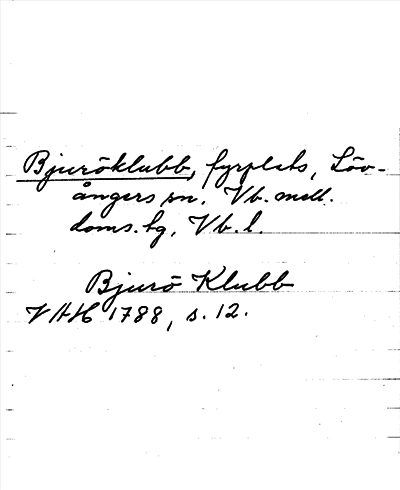 Bjuröklubb, fyrplats, Löv-
ångers sn. Vb. mell.
doms.tg, Vb. l.
Bjurö Klubb
VAH 1788, s. 12.